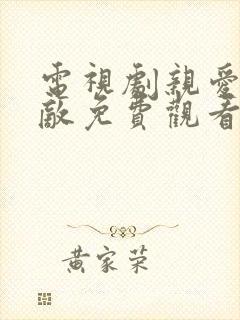 電視劇親愛
敵免費觀看
黃家荣